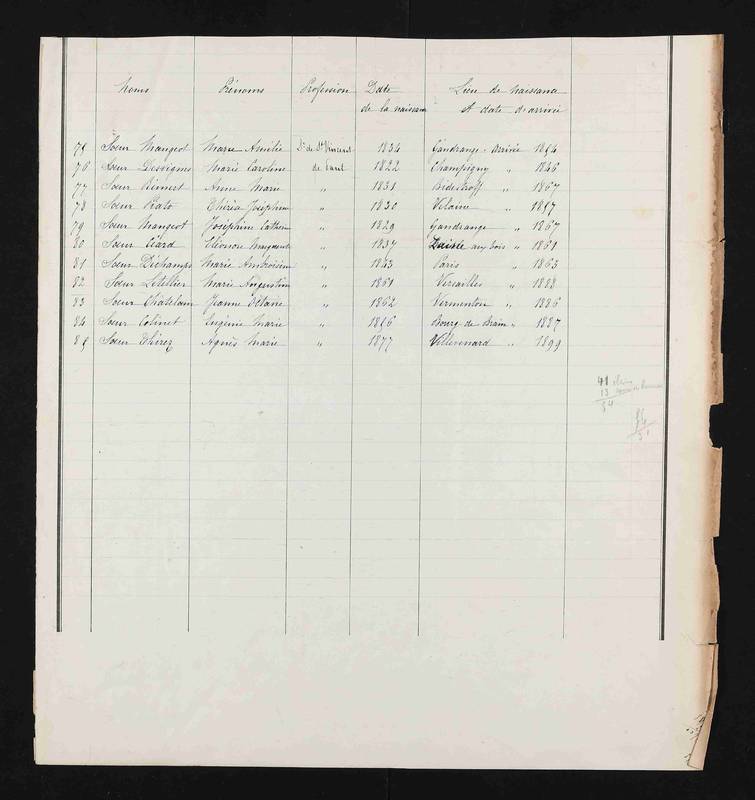 Noms Prénoms Profession Date de la naissance Lieu de naissance et date d'arrivée
75 Sœur Mangeot Marie Amélie St de St Vincent 1834 Gandrange - Arrivée 1854
76 Sœur Desvignes Marie Caroline de Paul 1822 Champigny " 1846
77 Sœur Anne Marie " 1831 1867
78 Sœur Joséphine " 1830 Velaine " 1857
79 Sœur Mangeot Joséphine Cather " 1829 Gandrange " 1867
80 Sœur " 1837 aux bois " 1861
81 Sœur Déchamps Marie Ambroisine " 1843 Paris " 1863
82 Sœur Letellier Marie Augustine " 1861 Versailles " 1888
83 Sœur Châtelain Jeanne Octavie " 1862 Vermenton " 1886
84 Sœur Colinet Eugénie Marie " 1856 Bourg-de- " 1887
85 Sœur Thirez Agnès Marie " 1877 Villevenard " 1899
41
13
54